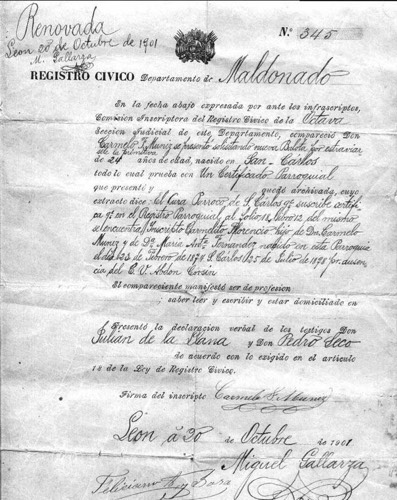 Renovada
Leon 20 de Octubre de 1901
M. Gallarza
N.o 345
REGISTRO CIVICO Departamento de Maldonado
En la fecha abajo expresada por ante los infrascriptos,
Comision Inscriptora del Registro Civico de la Octava
Seccion Judicial de este Departamento, compareció Don
Carmelo F. Muniz se presentó solicitando nueva Boleta por extraviar
de 24 años de edad, nacido en San-Carlos
todo lo cual prueba con Un Certificado Parroquial
que presentó y quedó archivada, cuyo
extracto dice: El Cura Parroco de S. Carlos qe suscribe certifi
ca qe en el Registro Parroquial al folio 12 Libro 12 del mismo
se encuentra Inscripto Carmelito Florencio hijo de Dn Carmelo
Muniz y de Da Maria Fernandez nacido en esta Parroquia
el dia 23 de Febrero de S. Carlos de Julio de por ausen
cia del C. V. Abdon
El compareciente manifestó ser de profesion
saber leer y escribir y estar domiciliado en
Presentó la declaracion verbal de los testigos Don
Julian de la Llana y Don Pedro Seco
de acuerdo con lo exigido en el articulo
14 de la Ley de Registro Civico.
Firma del inscripto Carmelo F. Muniz
Leon á 20 de Octubre de 1901
Miguel Gallarza
Feliciano Sosa